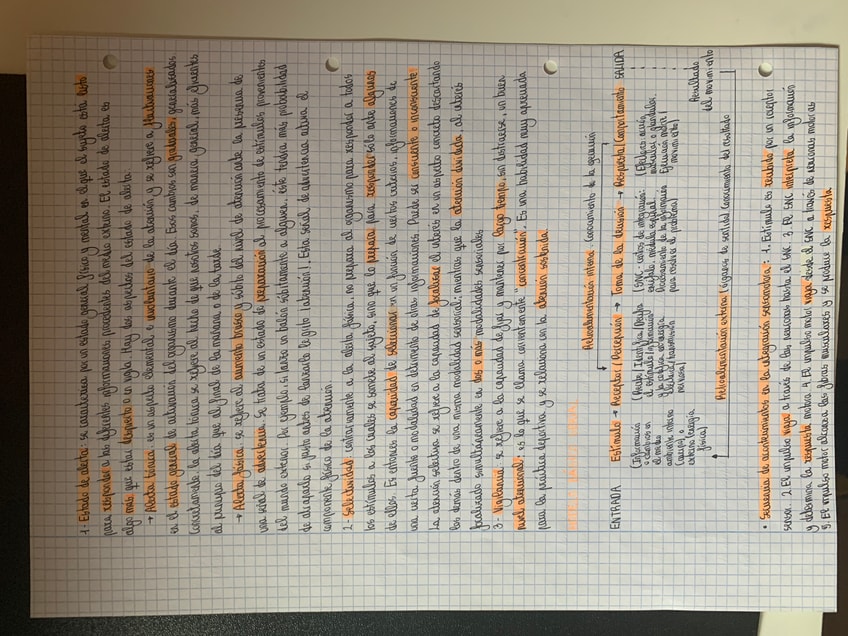 1- Estado de alerta: se caracteriza por un estado general físico y mental en el que el sujeto está listo
para responder a las diferentes informaciones procedentes del medio externo. El estado de alerta es
algo más que estar despierto o en vigilia. Hay dos aspectos del estado de alerta
→ Alerta tónica: es un aspecto elemental, e involuntario de la atención, y se refiere a fluctuaciones
en el estado general de activación del organismo durante el día. Esos cambios son graduales, generalizados
Concretamente la alerta tónica se refiere al hecho de que nosotros somos, de manera general, más eficientes
al principio del día que al final de la mañana o de la tarde.
→ Alerta fásica: se refiere al aumento brusco y súbito del nivel de atención ante la presencia de
una señal de advertencia. Se trata de un estado de preparación al procesamiento de estímulos provenientes
del mundo exterior. Por ejemplo, si lanzas un balón súbitamente a alguien, éste tendría más probabilidad
de atraparlo si justo antes de lanzarlo le grito ¡atención!. Esta señal de advertencia activa el
componente fásico de la atención.
2- Selectividad: contrariamente a la alerta fásica, no prepara al organismo para responder a todos
los estímulos a los cuales se somete al sujeto, sino que lo prepara para responder sólo ante algunos
de ellos. Es entonces la capacidad de seleccionar en función de ciertos criterios, informaciones de
una cierta fuente o modalidad en detrimento de otras informaciones. Puede ser consciente o inconsciente
La atención selectiva se refiere a la capacidad de focalizar el interés en un aspecto concreto descartando
los demás dentro de una misma modalidad sensorial; mientras que la atención dividida, al interés
focalizado simultáneamente en dos o más modalidades sensoriales.
3- Vigilancia: se refiere a la capacidad de fijar y mantener por largo tiempo, sin distraerse, un buen
nivel atencional; es lo que se llama comúnmente "concentración". Es una habilidad muy apreciada
para la práctica deportiva y se relaciona con la atención sostenida.
Autoalimentación interna - Conocimiento de la ejecución
ENTRADA Estímulo → Receptor | Percepción → Toma de la decisión → Respuesta | Comportamiento SALIDA
(Información o cambios en el medio ambiente interno (cuerpo) o externo (energía física)
(Recibe | Identifica | Recoge el estímulo | información y la codifica en energía eléctrica | transmisión nerviosa)
(SNC: centros de integración: encéfalo, médula espinal. Procesamiento de la información para resolver el problema)
(Efectores acción: músculos o glándulas. Ejecución motora | movimiento)
Autoalimentación externa (órganos de sentido) Conocimiento del resultado
Resultado
del movimiento
• Secuencia de acontecimientos en la integración sensomotora: 1. Estímulo es recibido por un receptor
sensor. 2 El impulso viaja a través de las neuronas hasta el SNC. 3. El SNC interpreta la información
y determina la respuesta motora 4. El impulso motor viaja desde el SNC a través de neuronas motoras
5. El impulso motor alcanza las fibras musculares y se produce la respuesta.